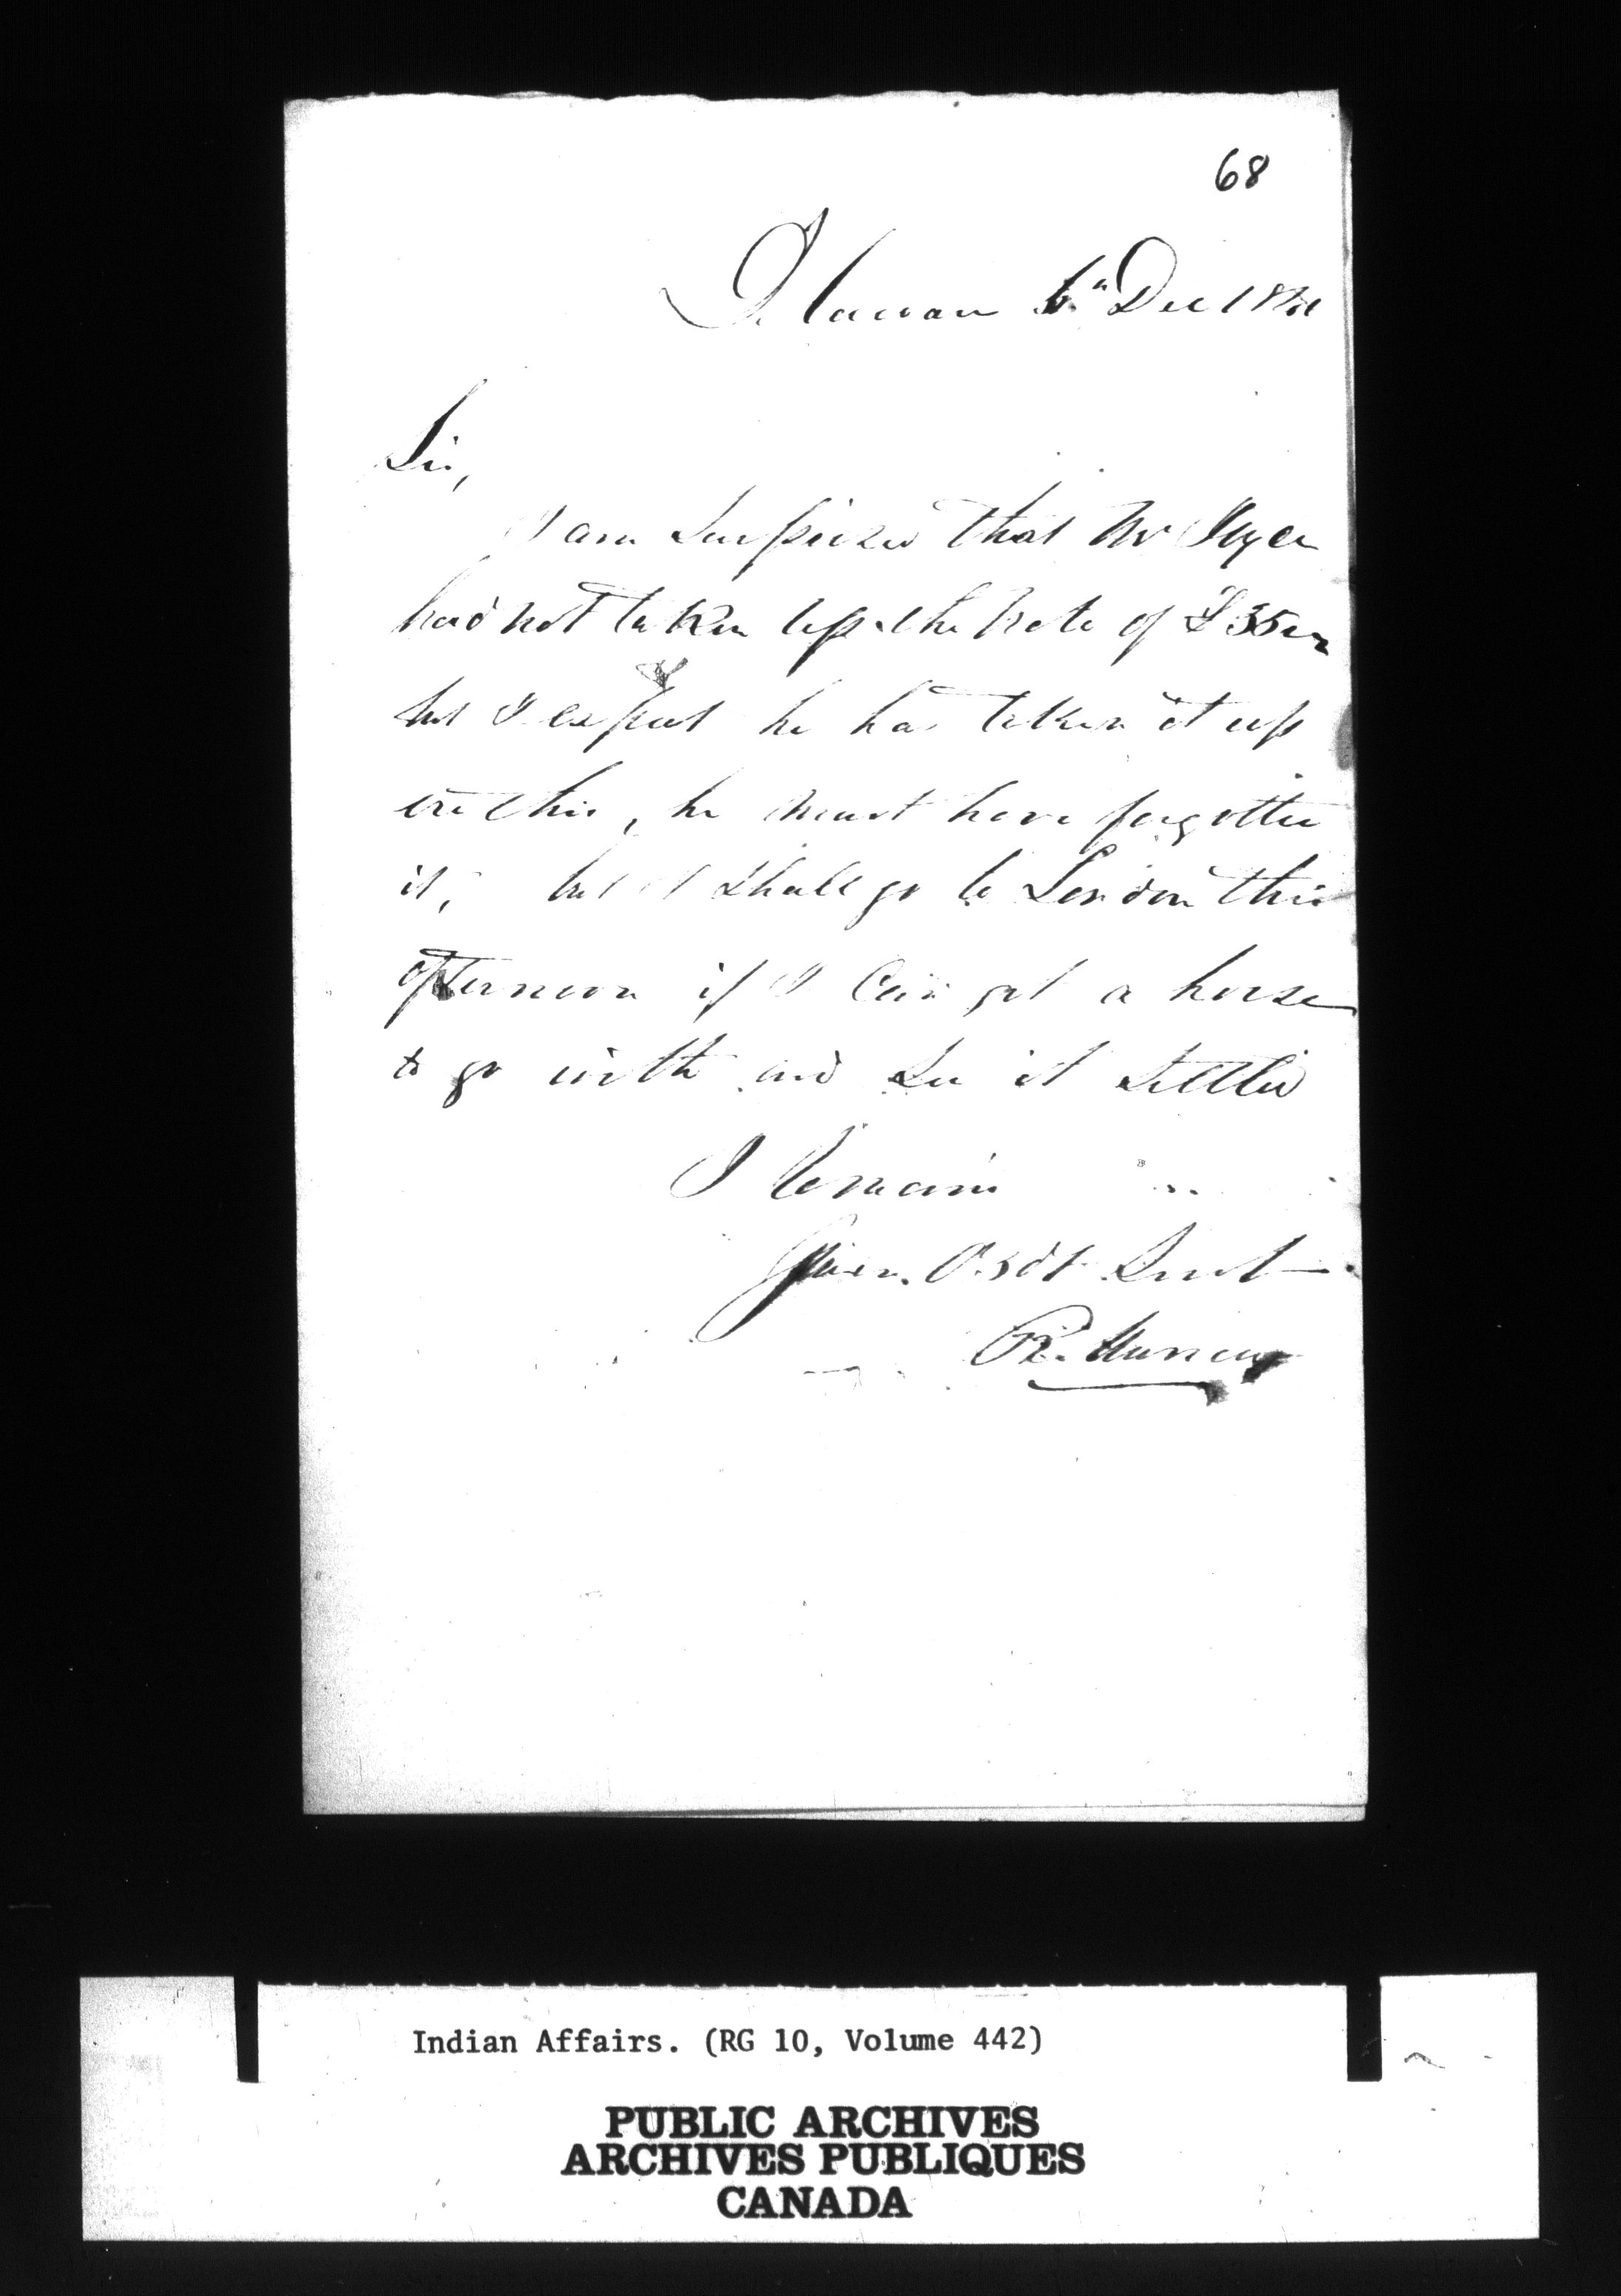 68
Dec 18
Sir,
I am Surprized that Mr
had not taken up the Note of £35
but I expect he has taken it up
ere this, he must have forgotten
it, but I shall go to London this
afternoon if I can get a horse
to go with and See it Settled
I remain
Your Obdt Servt
R.
Indian Affairs. (RG 10, Volume 442)
PUBLIC ARCHIVES
ARCHIVES PUBLIQUES
CANADA